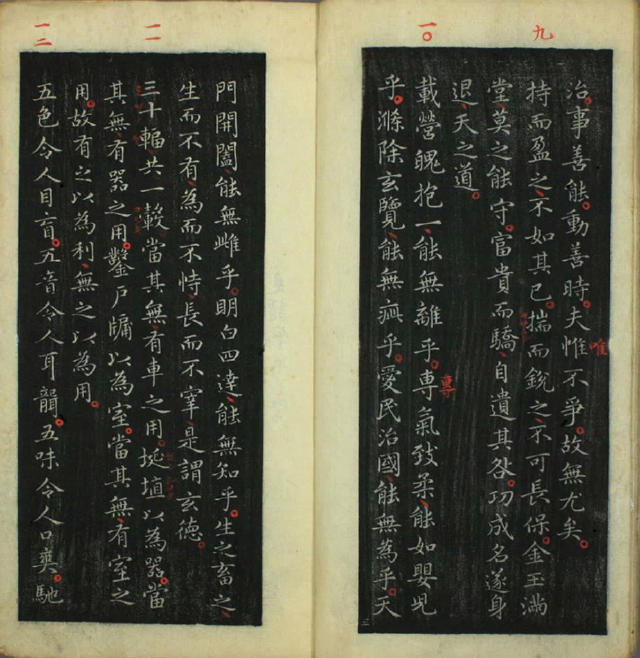 九
一〇
治、事善能、動善時。夫惟不爭、故無尤矣。
唯
持而盈之、不如其已。揣而銳之、不可長保。金玉滿
堂、莫之能守。富貴而驕、自遺其咎。功成名遂身
退、天之道。
載營魄抱一、能無離乎。專氣致柔、能如嬰兒
專
乎。滌除玄覽、能無疵乎。愛民治國、能無為乎。天
三
一一
一二
門開闔、能無雌乎。明白四達、能無知乎。生之畜之、
生而不有、為而不恃、長而不宰、是謂玄德。
三十輻共一轂、當其無、有車之用。埏埴以為器、當
其無、有器之用。鑿戶牖以為室、當其無、有室之
用。故有之以為利、無之以為用。
五色令人目盲。五音令人耳聾。五味令人口爽。馳